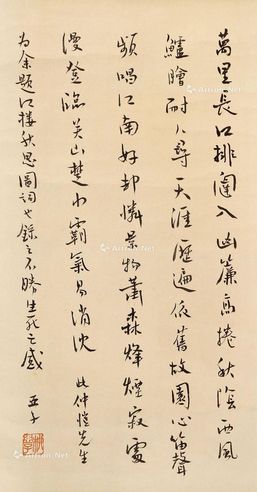 萬里長江排闥入幽簾高捲秋陰西風
鱸膾耐人尋天涯歷遍依舊故園心笛聲
頻唱江南好却憐景物蕭森烽煙寂處
漫登臨吳山楚水霸氣易消沈 此仲愷先生
為余題江樓秋思圖詞也錄之不勝生死之感 亞子